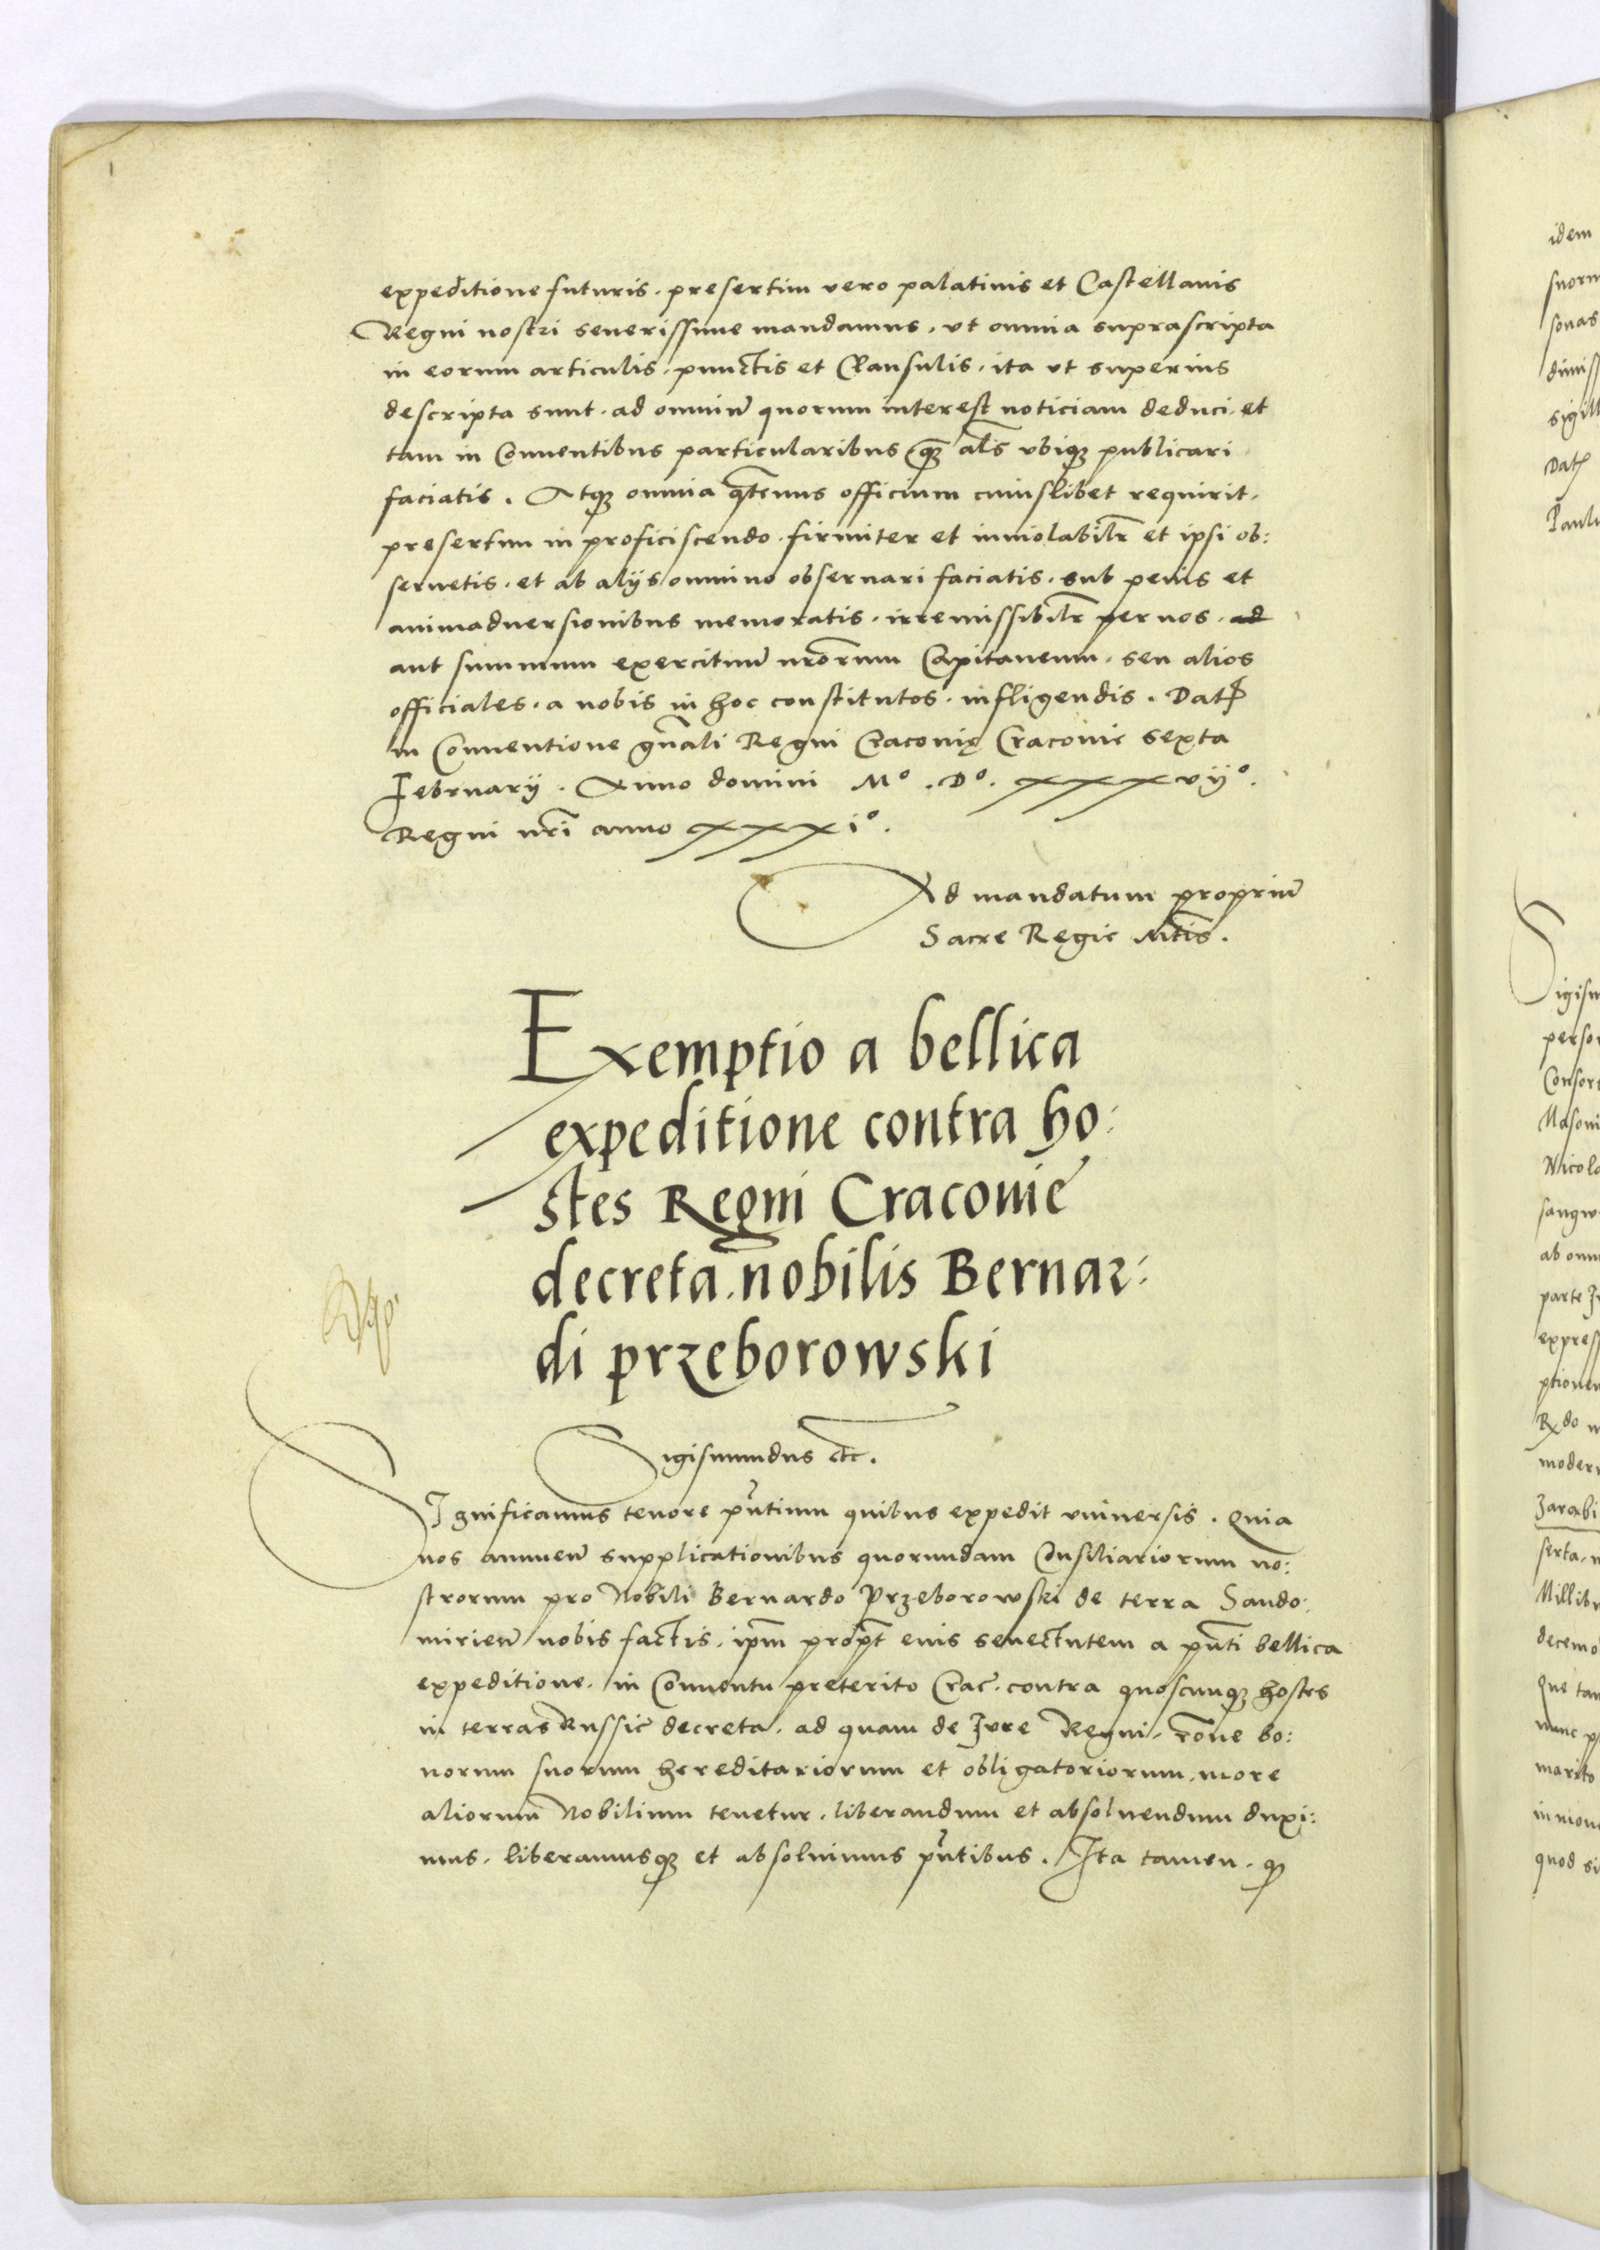 expeditione futuris. presertim vero palatinis et Castellanis
Regni nostri seuerissime mandamus. vt omnia suprascripta
in eorum articulis. punctis et Clausulis. ita vt superius
descripta sunt. ad omniũ quorum interest noticiam deduci. et
tam in Conuentibus particularibus q̃ȝ al̃s vbiqȝ publicari
faciatis. Atqȝ omnia q̃tenus officium cuiuslibet requirit.
presertim in proficiscendo. firmiter et inuiolabilr̃ et ipsi ob:
seruetis. et ab alijs omnino obseruari faciatis. sub penis et
animaduersionibus memoratis. irremissibilr̃ per nos. ad
aut summum exercituũ nr̃orum Capitaneum. seu alios
officiales. a nobis in hoc constitutos. infligendis. Datꝭ
in Conuentione gñali Regni Cracouię Cracouie sexta
Februarij. Anno domini Mº. Dº. xxxvijº.
Regni nr̃i anno xxxiº.
Ad mandatum propriũ
Sacre Regie Mt̃is.
Exemptio a bellica
expeditione contra ho:
stes Regni Cracouie
decreta. nobilis Bernar:
di przeborowski
Sigismundus etc.
SIgnificamus tenore pñtium quibus expedit vniuersis. Quia
nos annuen̄ supplicationibus quorundam Consiliariorum no:
strorum pro Nobili Bernardo Przeborowski de terra Sando:
mirien̄ nobis factis. ip̃m propt̃ eius senectutem a pñti bellica
expeditione. in Conuentu preterito Crac̃. contra quoscunqȝ hostes
in terras Russie decreta. ad quam de Jure Regni. rõne bo:
norum suorum hereditariorum et obligatoriorum. more
aliorum Nobilium tenetur. liberandum et absoluendum duxi:
mus. liberamusqȝ et absoluimus pñtibus. Ita tamen. qȝ
idem
sonas
Datꝭ
Sigism
Nicola
parte
marito
quod si